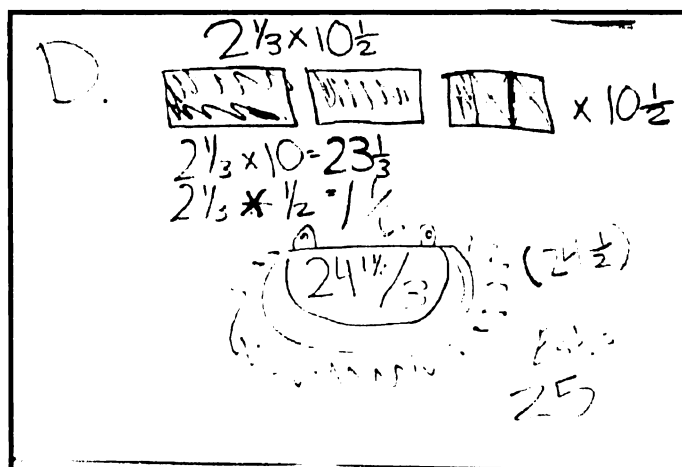 D.
2 1/3 × 10 1/2
× 10 1/2
2 1/3 × 10 = 23 1/3
2 1/3 * 1/2 = 1 1/6
(24 1/2)
25